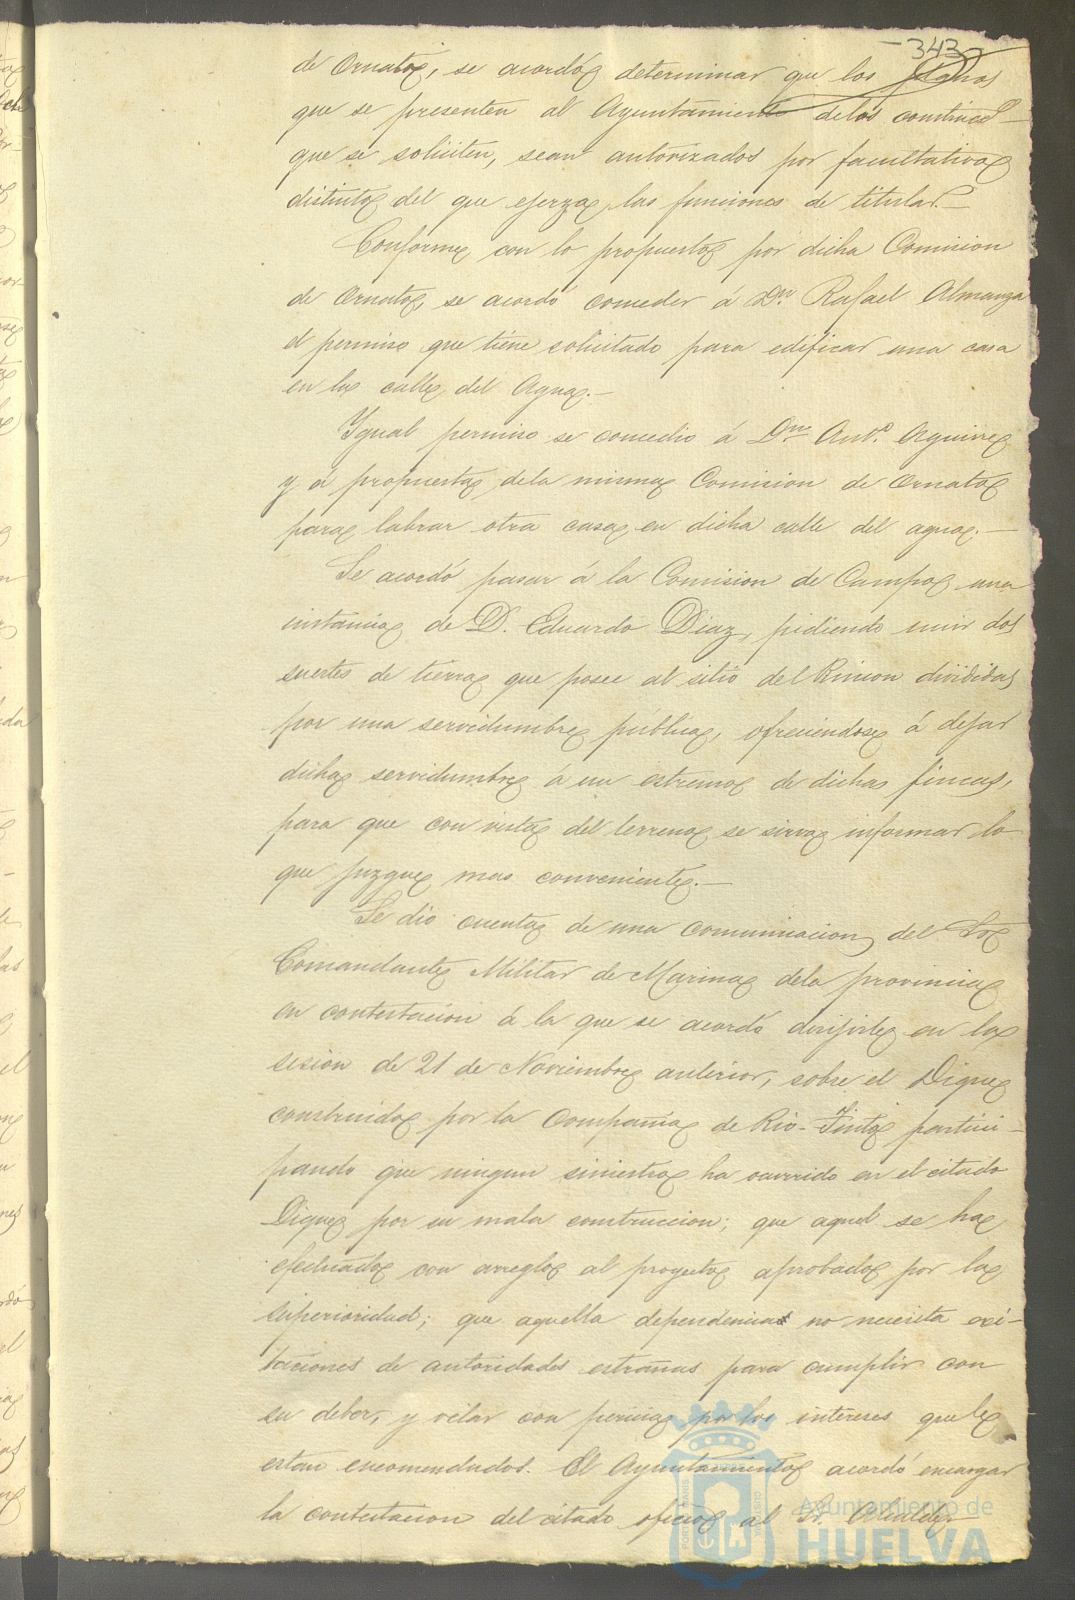 343
de Ornato, se acordó determinar que los planos
que se presenten al Ayuntamiento de los
que se soliciten, sean autorizados por facultativo
distinto del que ejerza las funciones de titular.—
Conforme con lo propuesto por dicha Comision
de Ornato, se acordó conceder á Dn. Rafael Almanza
el permiso que tiene solicitado para edificar una casa
en la calle del Agua.—
Ygual permiso se concedio á Dn. Antº. Aguirre
y á propuesta dela misma Comision de Ornato
para labrar otra casa en dicha calle del agua.—
Se acordó pasar á la Comision de Campo una
instancia de D. Eduardo Diaz, pidiendo unir dos
suertes de tierra que posee al sitio del Rincon divididas
por una servidumbre pública, ofreciendose á dejar
dicha servidumbre á un estremo de dichas fincas,
para que con vista del terreno se sirva informar lo
que juzgue mas conveniente.—
Se dio cuenta de una comunicacion del Sor
Comandante Militar de Marina dela provincia
en contestacion á la que se acordó dirijirle en la
sesion de 21 de Noviembre anterior, sobre el Dique
construido por la Compañia de Rio-Tinto partici-
pando que ningun siniestro ha ocurrido en el citado
Dique por su mala construccion; que aquel se ha
efectuado con arreglo al proyecto aprobado por la
superioridad; que aquella dependencia no necesita exi-
taciones de autoridades estrañas para cumplir con
su deber, y velar con pericia por los intereses que le
estan encomendados. El Ayuntamiento acordó encargar
la contestacion del citado oficio al Sr. Alcalde
Ayuntamiento de
HUELVA